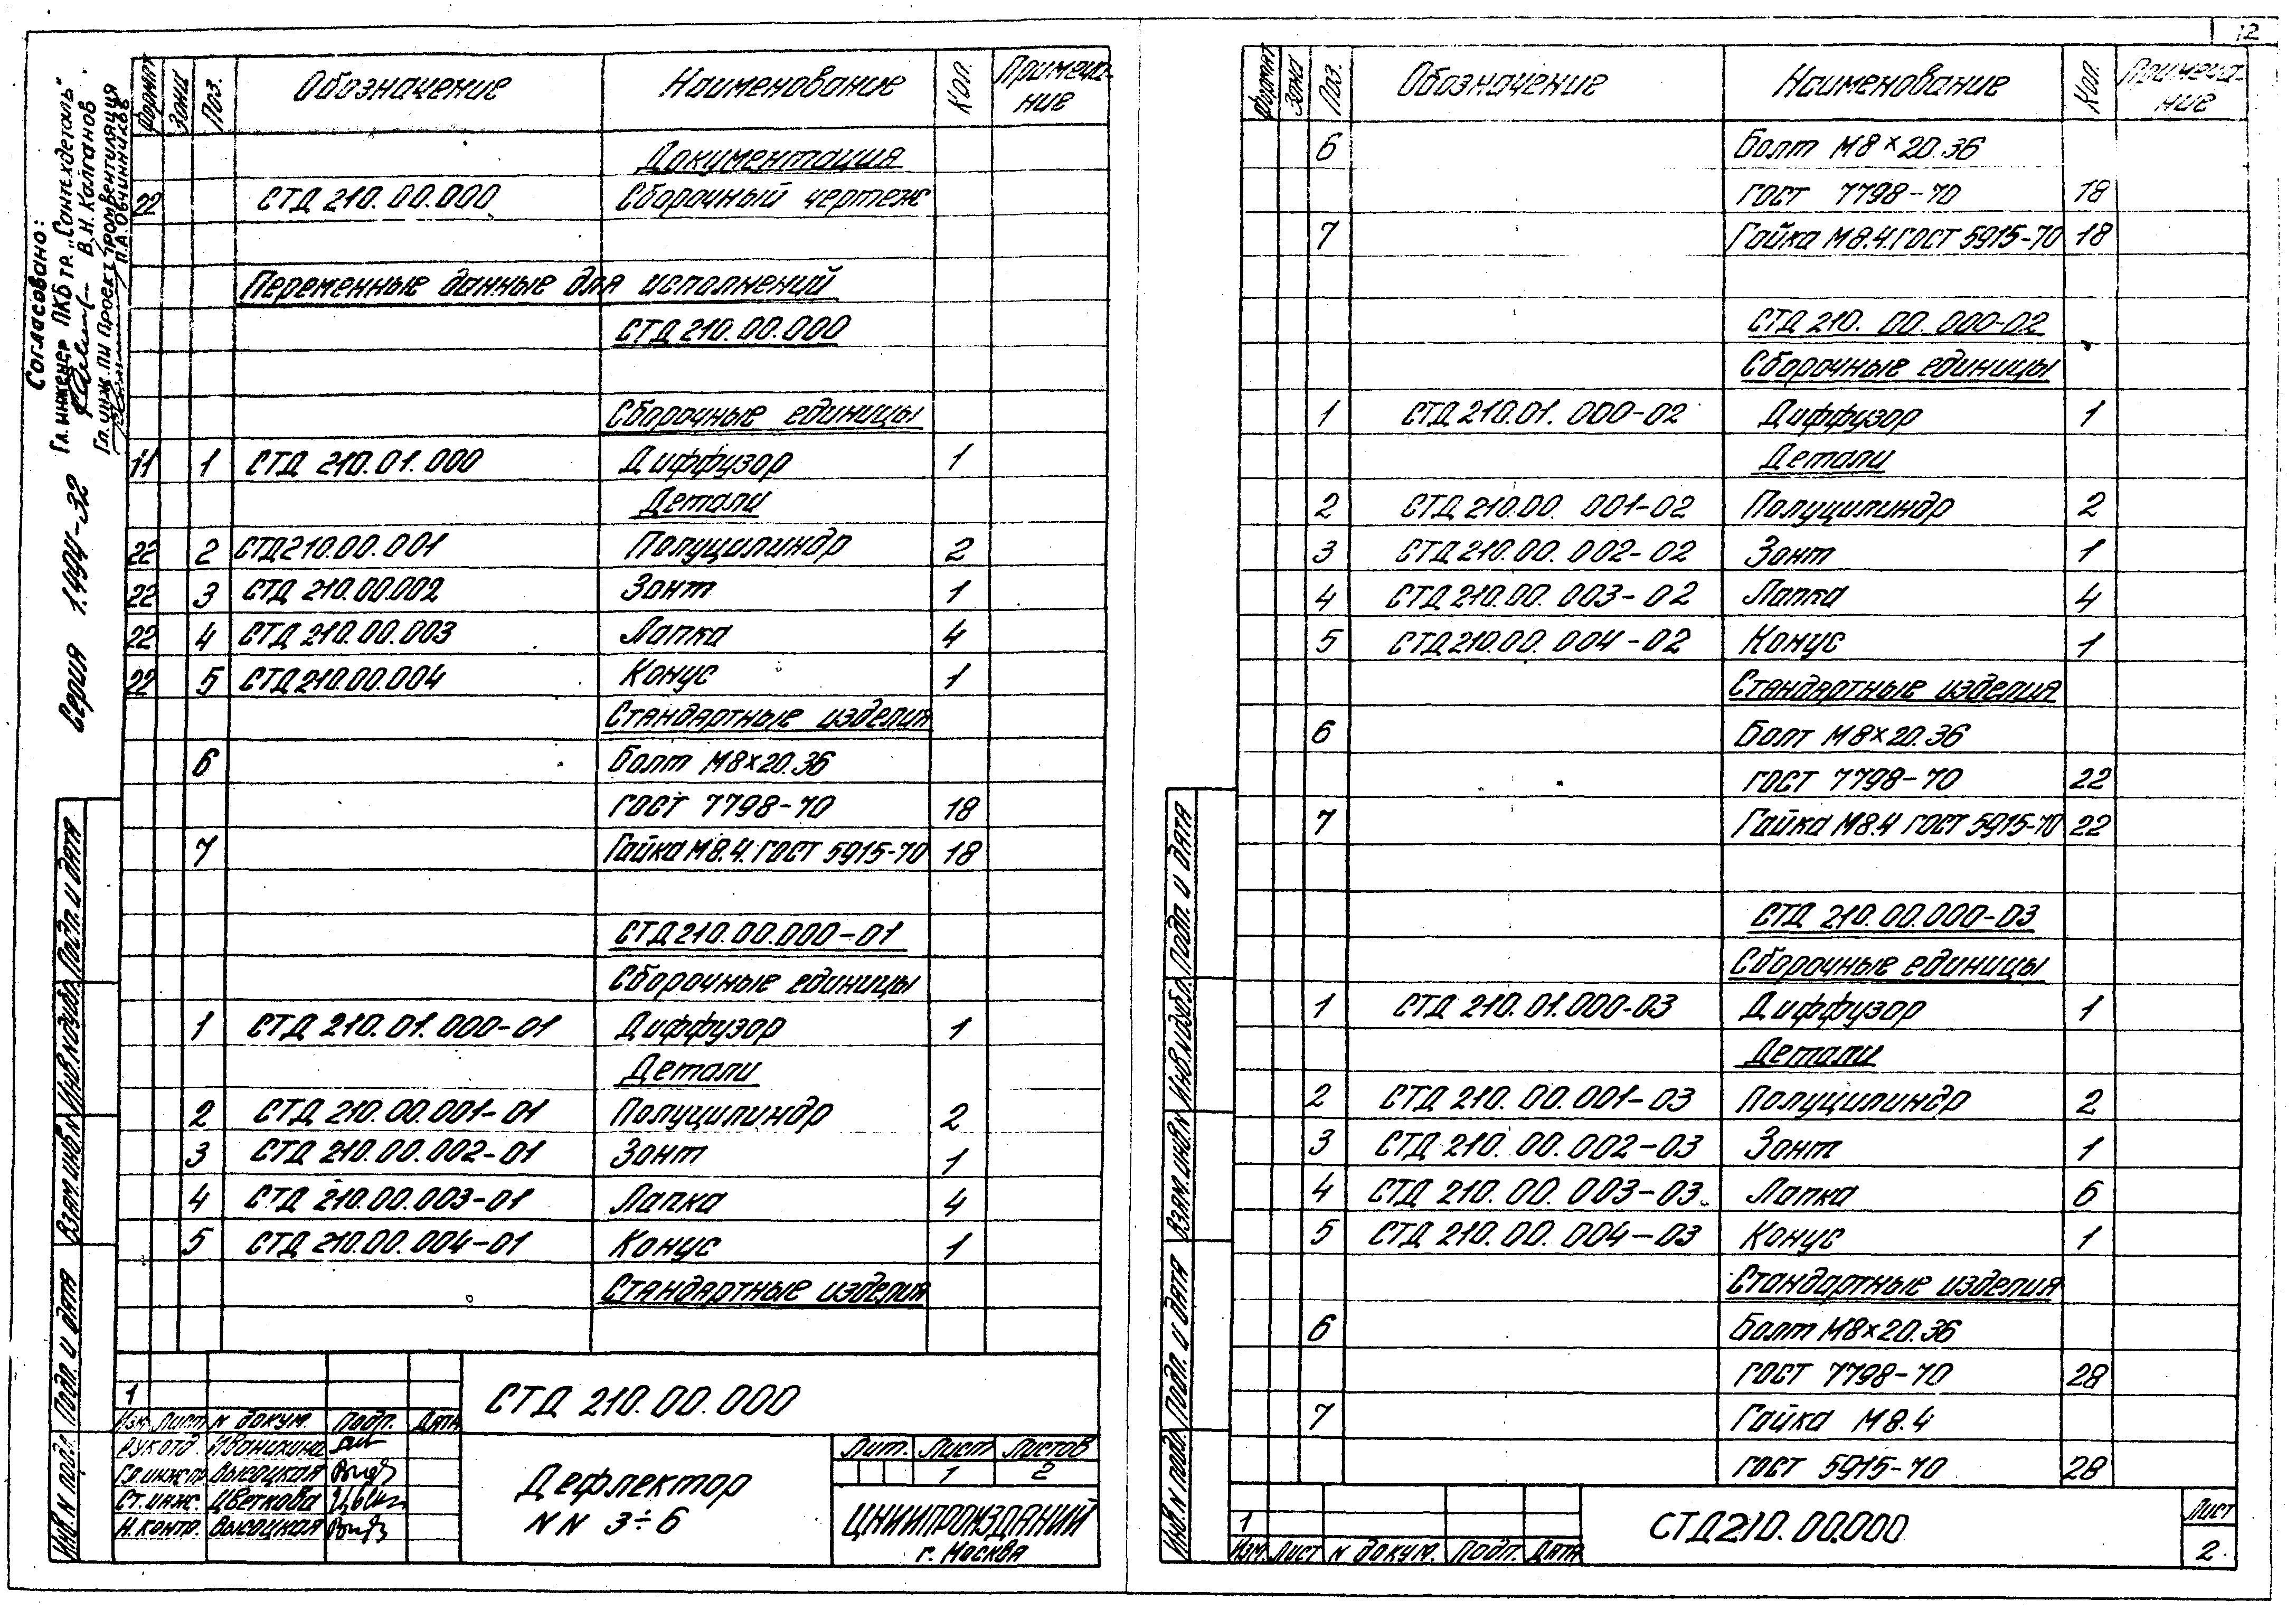 12
Согласовано:
Гл. инженер ПКБ тр. „Сантехдеталь"
В.Н. Колганов
Гл. инж. ПИ Проектпромвентиляция
П.А. Овчинников
Серия 1.494-32
Формат Зона Поз. Обозначение Наименование Кол. Примеча-
ние
Документация
22 СТД 210.00.000 Сборочный чертеж
Переменные данные для исполнений
СТД 210.00.000
Сборочные единицы
11 1 СТД 210.01.000 Диффузор 1
Детали
22 2 СТД 210.00.001 Полуцилиндр 2
22 3 СТД 210.00.002 Зонт 1
22 4 СТД 210.00.003 Лапка 4
22 5 СТД 210.00.004 Конус 1
Стандартные изделия
6 Болт М8×20.36
ГОСТ 7798-70 18
7 Гайка М8.4.ГОСТ 5915-70 18
СТД 210.00.000-01
Сборочные единицы
1 СТД 210.01.000-01 Диффузор 1
Детали
2 СТД 210.00.001-01 Полуцилиндр 2
3 СТД 210.00.002-01 Зонт 1
4 СТД 210.00.003-01 Лапка 4
5 СТД 210.00.004-01 Конус 1
Стандартные изделия
Подп. и дата
Инв.N дубл.
Взам.инв.N
Подп. и дата
Инв.N подл.
1
Изм. Лист N докум. Подп. Дата
Рук.отд. Иванихина
Гл.инж.пр. Высоцкая
Ст.инж. Цветкова
Н.контр. Высоцкая
СТД 210.00.000
Дефлектор
NN 3÷6
Лит. Лист Листов
1 2
ЦНИИПРОМЗДАНИЙ
г. Москва
Формат Зона Поз. Обозначение Наименование Кол. Примеча-
ние
6 Болт М8×20.36
ГОСТ 7798-70 18
7 Гайка М8.4.ГОСТ 5915-70 18
СТД 210.00.000-02
Сборочные единицы
1 СТД 210.01.000-02 Диффузор 1
Детали
2 СТД 210.00.001-02 Полуцилиндр 2
3 СТД 210.00.002-02 Зонт 1
4 СТД 210.00.003-02 Лапка 4
5 СТД 210.00.004-02 Конус 1
Стандартные изделия
6 Болт М8×20.36
ГОСТ 7798-70 22
7 Гайка М8.4 ГОСТ 5915-70 22
СТД 210.00.000-03
Сборочные единицы
1 СТД 210.01.000-03 Диффузор 1
Детали
2 СТД 210.00.001-03 Полуцилиндр 2
3 СТД 210.00.002-03 Зонт 1
4 СТД 210.00.003-03 Лапка 6
5 СТД 210.00.004-03 Конус 1
Стандартные изделия
6 Болт М8×20.36
ГОСТ 7798-70 28
7 Гайка М8.4
ГОСТ 5915-70 28
Подп. и дата
Инв.N дубл.
Взам.инв.N
Подп. и дата
Инв.N подл.
1
Изм. Лист N докум. Подп. Дата
СТД 210.00.000
Лист
2